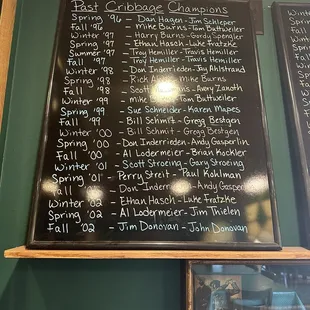 Past Cribbage Champions
Spring '96 - Dan Hagen - Jim Schleper
Fall '96 - Mike Burns - Tom Battweiler
Winter '97 - Harry Burns - Gordy Spengler
Spring '97 - Ethan Hasch - Luke Fratzke
Summer '97 - Troy Hemiller - Travis Hemiller
Fall '97 - Troy Hemiller - Travis Hemiller
Winter '98 - Don Inderrieden - Jay Ahlstrand
Spring '98 - Rick - Mike Burns
Fall '98 - Scott - Avery Zanoth
Winter '99 - Mike Burns - Tom Battweiler
Spring '99 - Sue Schneider - Karen Mapes
Fall '99 - Bill Schmit - Gregg Bestgen
Winter '00 - Bill Schmit - Gregg Bestgen
Spring '00 - Don Inderrieden - Andy Gasperlin
Fall '00 - Al Lodermeier - Brian Kockler
Winter '01 - Scott Stroeing - Gary Stroeing
Spring '01 - Perry Streit - Paul Kohlman
Fall - Don Inderrieden - Andy
Winter '02 - Ethan Hasch - Luke Fratzke
Spring '02 - Al Lodermeier - Jim Thielen
Fall '02 - Jim Donovan - John Donovan